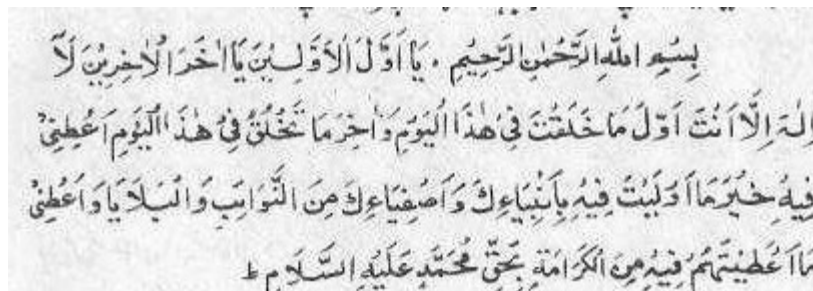 بِسْمِ اللهِ الرَّحْمٰنِ الرَّحِيْمِ ۔ يَا اَوَّلَ الْاَوَّلِيْنَ يَا اٰخَرَ الْاٰخِرِيْنَ لَآ
اِلٰهَ اِلَّا اَنْتَ اَوَّلَ مَا خَلَقْتَ فِيْ هٰذَا الْيَوْمِ وَاٰخِرَ مَا تَخْلُقُ فِيْ هٰذَا الْيَوْمِ اَعْطِنِيْ
فِيْهِ خَيْرَ مَا اَوْلَيْتَ فِيْهِ بِاَنْبِيَاءِكَ وَاَصْفِيَاءِكَ مِنَ النَّوَائِبِ وَالْبَلَايَا وَاَعْطِنِيْ
مَا اَعْطَيْتَهُمْ فِيْهِ مِنَ الْكَرَامَةِ بِحَقِّ مُحَمَّدٍ عَلَيْهِ السَّلَامِ ط